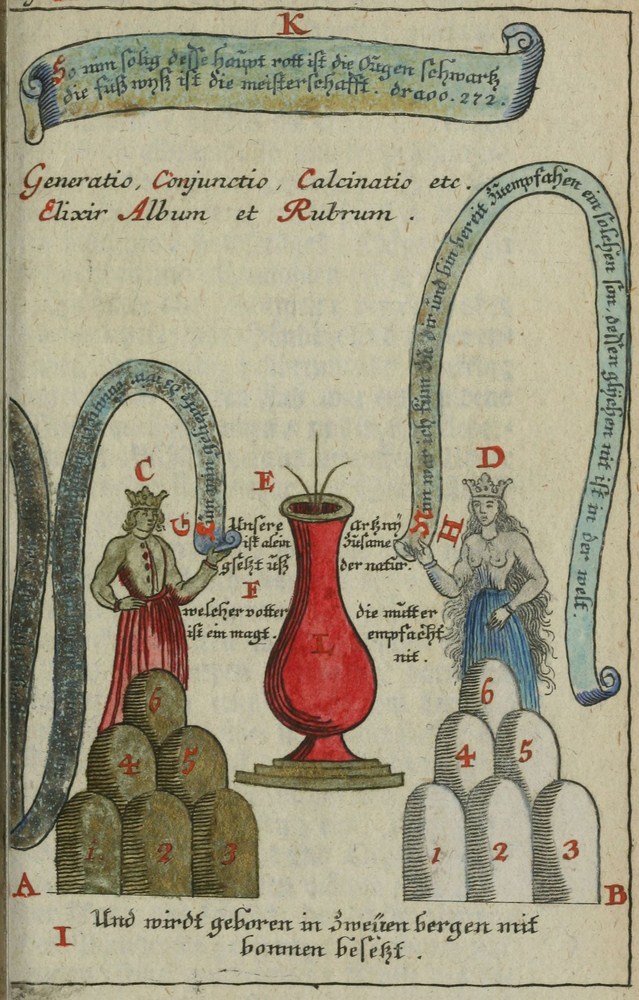 K
So nun solig desse haupt rott ist die Ougen schwartz
die fuß wyß ist die meisterschafft. draco. 272.
Generatio, Conjunctio, Calcinatio etc.
Elixir Album et Rubrum.
Kum wer ich kum zu dir und bin bereit zuempfahen ein solchen son, dessen glychen nit ist in der welt.
C
D
E
G
H
Unsere artzny
ist alein zusame
gsetzt uß der natur.
F
welcher votter die mutter
ist ein magt. empfacht
nit.
L
6
4 5
1 2 3
6
4 5
1 2 3
A
B
I
Und wirdt geboren in zweyen bergen mit
bommen besetzt.